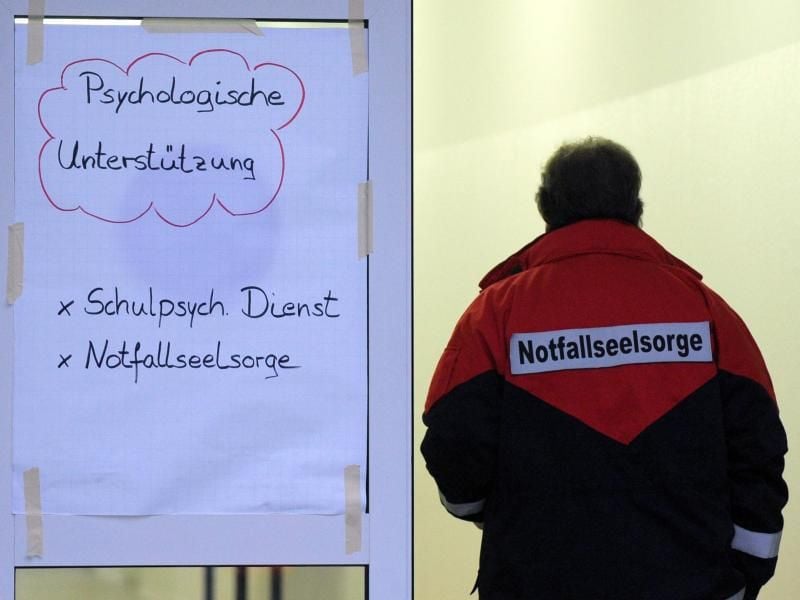 Psychologische
Unterstützung
x Schulpsych. Dienst
x Notfallseelsorge
Notfallseelsorge